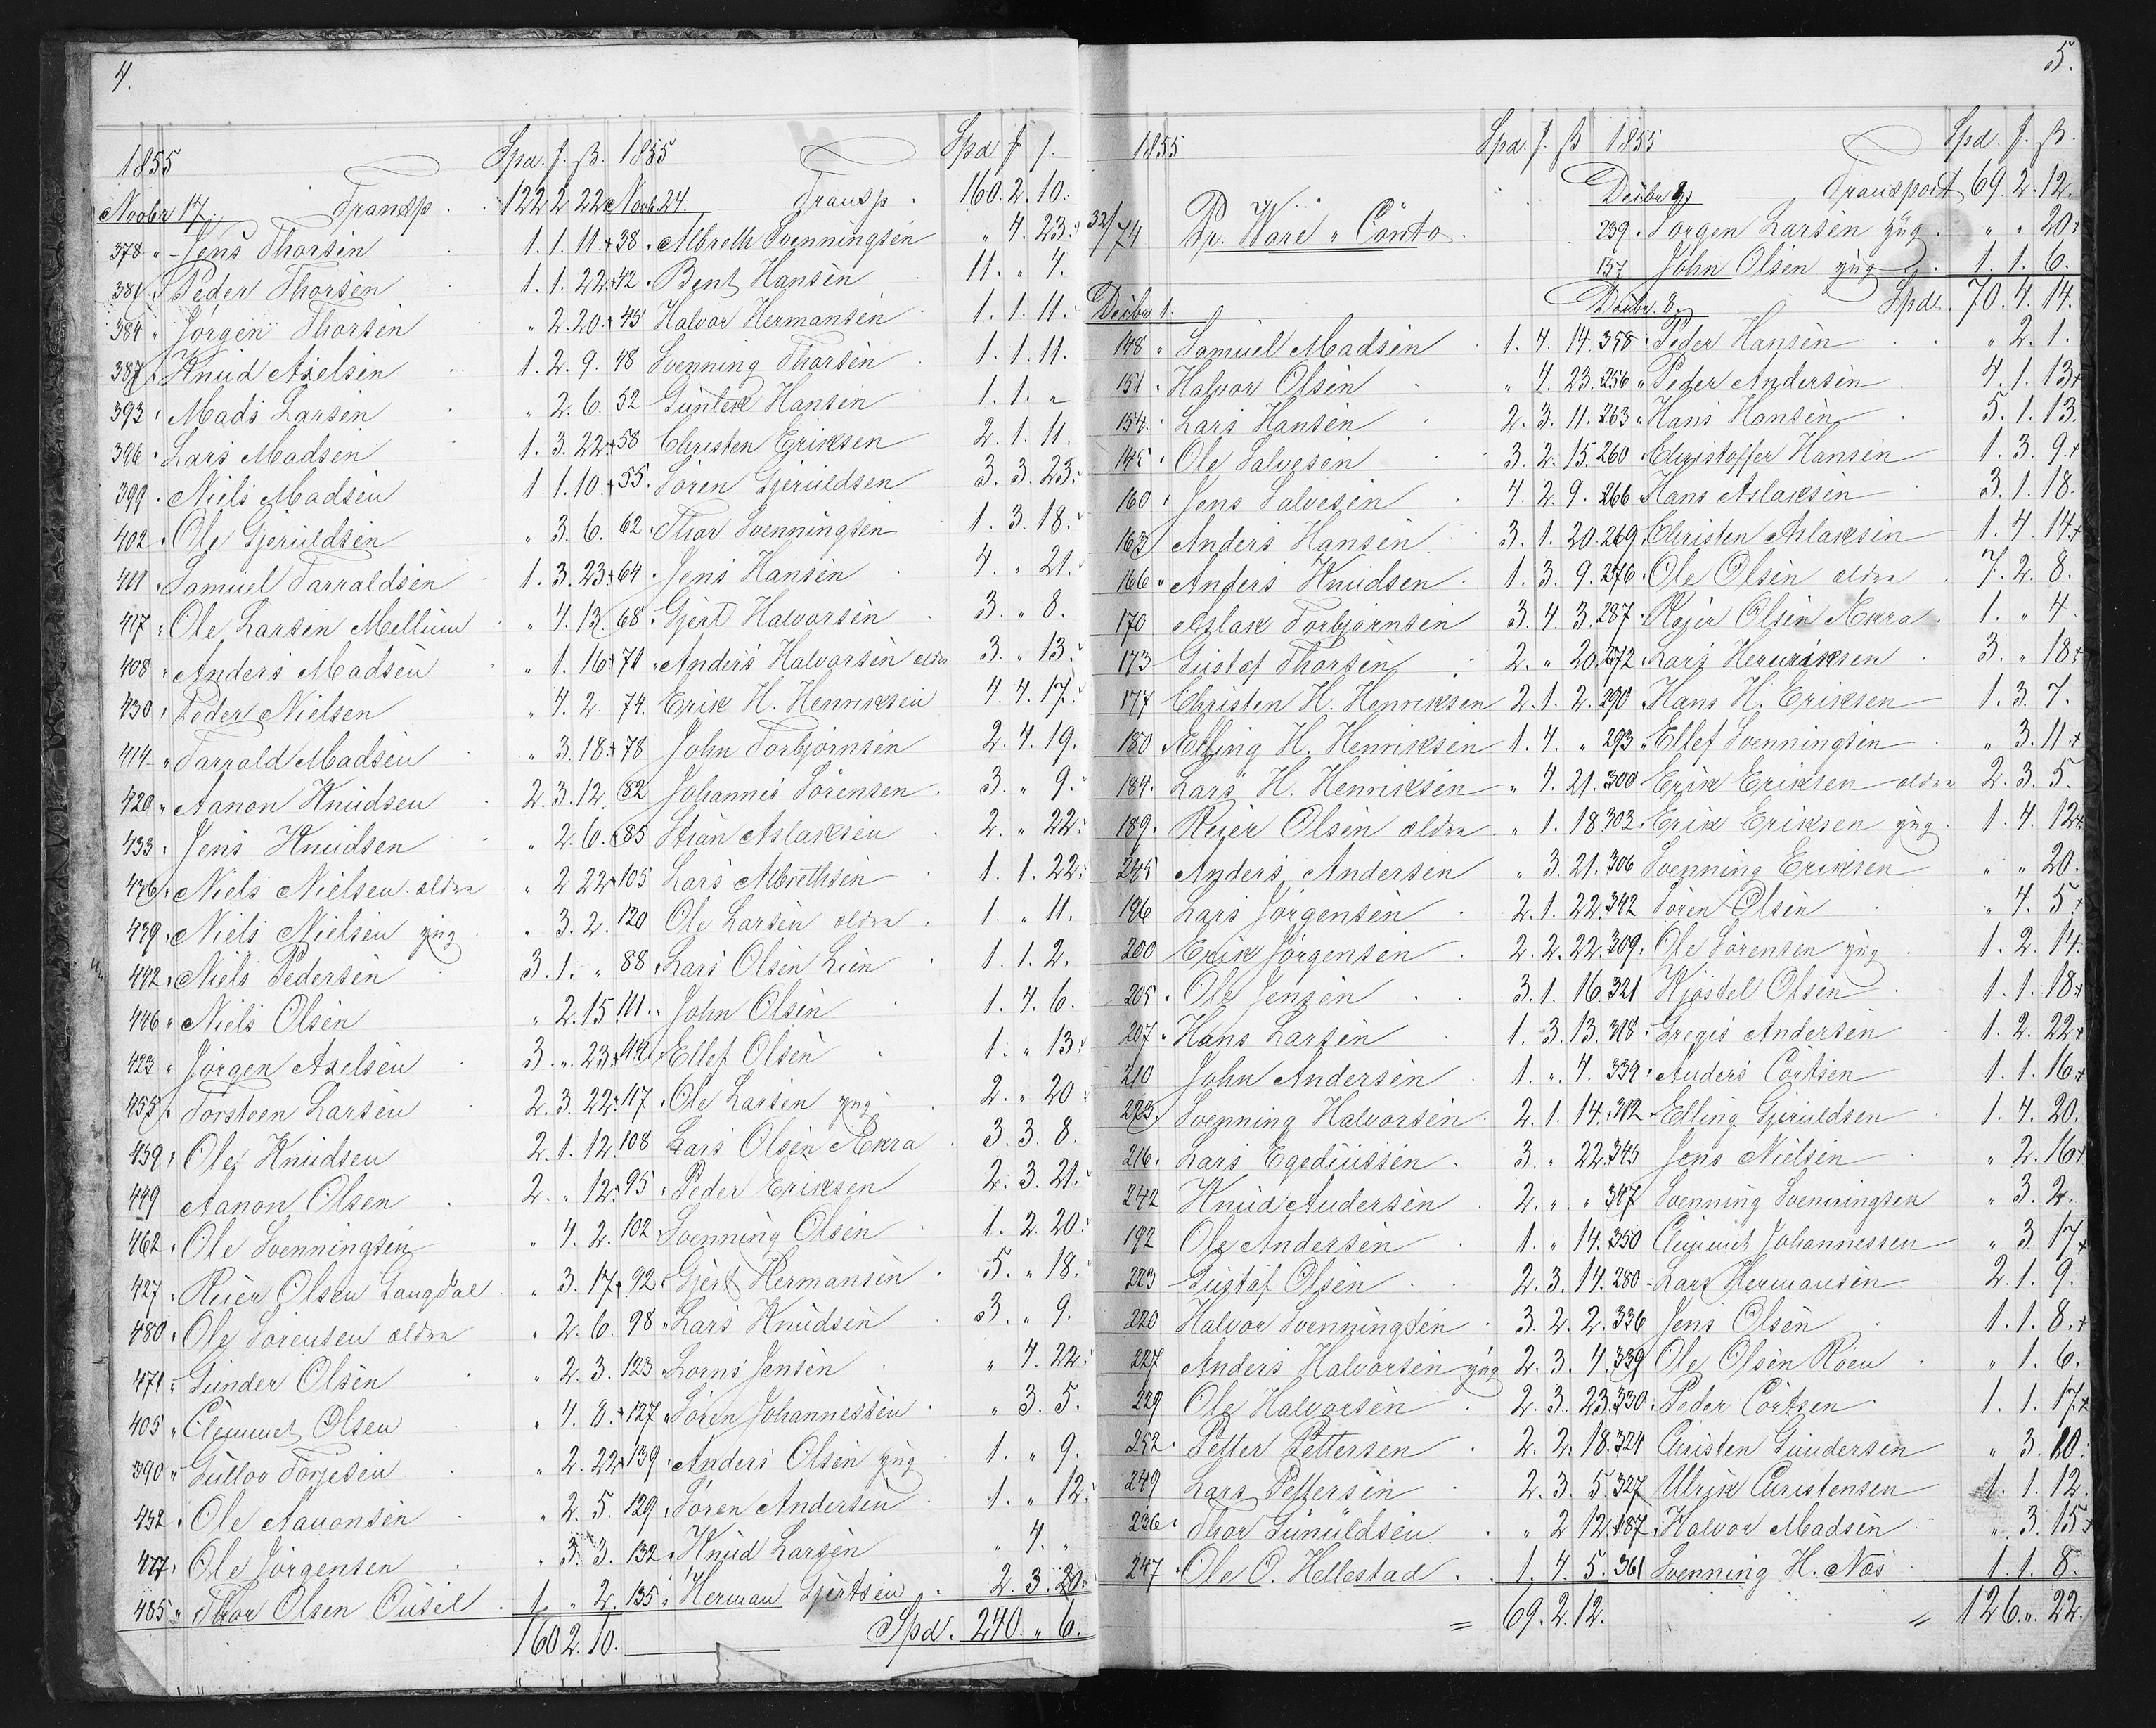 4.
1855 Spd. f. ß.
Novbr 17. Transp. 122 2 22
378 " Jens Thorsen 1. 1. 11. +
381 " Peder Thorsen 1. 1. 22. +
384 " Jörgen Thorsen " 2. 20. +
387 " Knud Axelsen 1. 2. 9.
393 " Mads Larsen " 2. 6.
396 " Lars Madsen 1. 3. 22. +
399 " Niels Madsen 1. 1. 10. +
402 " Ole Gjeruldsen " 3. 6.
411 " Samuel Tarraldsen 1. 3. 23 +
417 " Ole Larsen Mellum " 4. 13.
408 " Anders Madsen " 1. 16 +
430 " Peder Nielsen " 4. 2.
414 " Tarrald Madsen " 3. 18. +
420 " Aanon Knudsen 2. 3. 12.
433 " Jens Knudsen " 2. 6.
436 " Niels Nielsen eldre " 2 22 +
439 " Niels Nielsen yng " 3. 2.
442 " Niels Pedersen 3. 1. "
446 " Niels Olsen " 2. 15
423 " Jörgen Axelsen 3. " 23. +
455 " Torsteen Larsen 2. 3. 22. +
459 " Ole Knudsen 2. 1. 12.
449 Aanon Olsen 2. " 12. +
462 " Ole Svenningsen " 4. 2.
427 " Reier Olsen Langdal " 3. 17 +
480 " Ole Sörensen eldre " 2. 6.
471 " Gunder Olsen " 2. 3.
405 " Clemmet Olsen " 4. 8. +
390 " Gullov Torjesen " 2. 22 +
452 " Ole Aanonsen " 2. 5.
477 " Ole Jörgensen " 3. 3.
485 " Thor Olsen Ousel 1 " 2.
160 2. 10.
1855 Spd f ß.
Novb. 24. Transp. 160. 2. 10.
38 " Albreth Svenningsen " 4. 23.
42 " Bent Hansen 11. " 4.
45 Halvor Hermansen 1. 1. 11.
48 Svenning Thorsen 1. 1. 11.
52 Gunlek Hansen 1. 1. "
58 Christen Eriksen 2. 1. 11.
55. Sören Gjeruldsen 3. 3. 23.
62 " Thor Svenningsen 1. 3. 18.
64 " Jens Hansen 4. " 21.
68 " Gjert Halvorsen 3. " 8.
71 " Anders Halvorsen eldre 3. " 13.
74. Erik H. Henriksen 4. 4. 17.
78 John Torbjörnsen 2. 4. 19.
82 Johannis Sörensen 3. " 9.
85 Stian Aslaksen 2. " 22.
105 Lars Albrethsen 1. 1. 22.
120 Ole Larsen eldre 1. " 11.
88 " Lars Olsen Lien 1. 1. 2.
111 " John Olsen 1. 4. 6.
114 " Ellef Olsen 1. " 13.
117 " Ole Larsen yng 2. " 20
108 Lars Olsen Akra 3. 3. 8.
95 " Peder Eriksen 2. 3. 21.
102 Svenning Olsen 1. 2. 20.
92 " Gjert Hermansen 5. " 18.
98 " Lars Knudsen 3. " 9.
123 " Lorns Jensen " 4. 22.
127 " Sören Johannessen " 3. 5.
139 " Anders Olsen yng 1. " 9.
129 " Sören Andersen 1. " 12.
132 " Knud Larsen " 4. "
135 " Herman Gjertsen 2. 3. 20.
Spd. 240. " 6.
5.
1855 Spd. f. ß
32/74 Pr. Ware " Conto
Decbr 1.
148 " Samuel Madsen 1. 4. 14.
151 " Halvor Olsen " 4. 23.
154 " Lars Hansen 2. 3. 11.
145 " Ole Salvesen 3. 2. 15.
160 " Jens Salvesen 4. 2. 9.
163 Anders Hansen 3. 1. 20.
166 " Anders Knudsen 1. 3. 9.
170 Aslak Torbjörnsen 3. 4. 3.
173 Gustaf Thorsen 2. " 20.
177 Christen H. Henriksen 2. 1. 2.
180 Elling H. Henriksen 1. 4. "
184. Lars H. Henriksen " 4. 21.
189. Reier Olsen eldre " 1. 18
245 Anders Andersen " 3. 21.
196 Lars Jörgensen 2. 1. 22.
200 Erik Jörgensen 2. 2. 22.
205 " Ole Jensen 3. 1. 16.
207 " Hans Larsen 1. 3. 13.
210 John Andersen 1. " 4.
223. Svenning Halvorsen 2. 1. 14.
216. Lars Egediussen 3. " 22.
242 Knud Andersen 2. " "
192 Ole Andersen 1. " 14.
223 Gustaf Olsen 2. 3. 14.
220 Halvor Svenningsen 3. 2. 2.
227 Anders Halvorsen yng 2. 3. 4.
229 Ole Halvorsen 2. 3. 23.
252 " Petter Pettersen 2. 2. 18.
249 Lars Pettersen 2. 3. 5.
236 " Thor Gunuldsen " 2 12.
247 " Ole O. Hellestad 1. 4. 5.
= 69. 2. 12.
1855 Spd. f. ß.
Decbr 8. Transport 69. 2. 12.
239 " Jorgen Larsen yng " " 20.
157 John Olsen yng 1. 1. 6.
Decbr. 8. Spd. 70. 4. 14.
358 " Peder Hansen " 2. 1.
256 " Peder Andersen 4. 1. 13 +
263 " Hans Hansen 5. 1. 13.
260 Christoffer Hansen 1. 3. 9. +
266 Hans Aslaksen 3. 1. 18.
269 " Christen Aslaksen 1. 4. 14 +
276 " Ole Olsen eldre 7. 2. 8.
287 " Reier Olsen Akra 1. " 4
272 " Lars Henriksen 3. " 18 +
290 " Hans H. Eriksen 1. 3. 7.
293 " Ellef Svenningsen " 3. 11 +
300 " Erik Eriksen eldre 2. 3. 5.
303 " Erik Eriksen yng 1. 4. 12 +
306 Svenning Eriksen " " 20.
342 Sören Olsen " 4. 5 +
309. Ole Sörensen yng 1. 2. 14.
321 Kjöstel Olsen 1. 1. 18 +
318 " Gregis Andersen 1. 2. 22 +
339 " Anders Cortsen 1. 1. 16 +
312 " Elling Gjeruldsen 1. 4. 20.
345 Jens Nielsen " 2. 16 +
347 Svenning Svenningsen " 3. 2.
350 Clemmet Johannessen " 3. 17 +
280 " Lars Hermansen 2. 1. 9.
336 Jens Olsen 1. 1. 8. +
339 Ole Olsen Röen " 1. 6.
330 " Peder Cortsen 1. 1. 17 +
324 Christen Gundersen " 3. 10.
327 Ulrik Christensen 1. 1. 12.
187 " Halvor Madsen " 3. 15 +
361 Svenning H. Næs 1. 1. 8.
= 126. " 22.